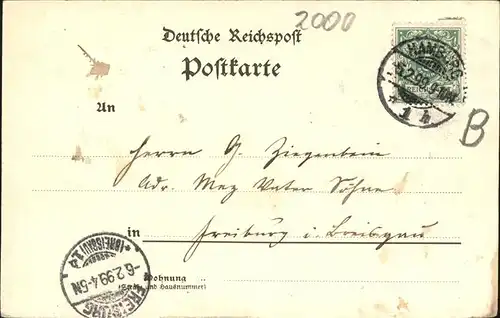 2000
Deutsche Reichspost
Postkarte
HAMBURG
5.2.99.9-10N
* 1 h
B
An
Herrn G. Ziegenbein
Adr. Mez Vater Söhne
in Freiburg i. Breisgau
Wohnung
(Straße und Hausnummer)
FREIBURG
-6.2.99.4-5N
* (BREISGAU) 2.